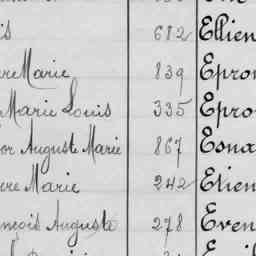 is 682 Ellien
re Marie 839 Epron
Marie Louis 335 Epro
or Auguste Marie 867
re Marie 242 Etien
ançois Auguste 278 Even